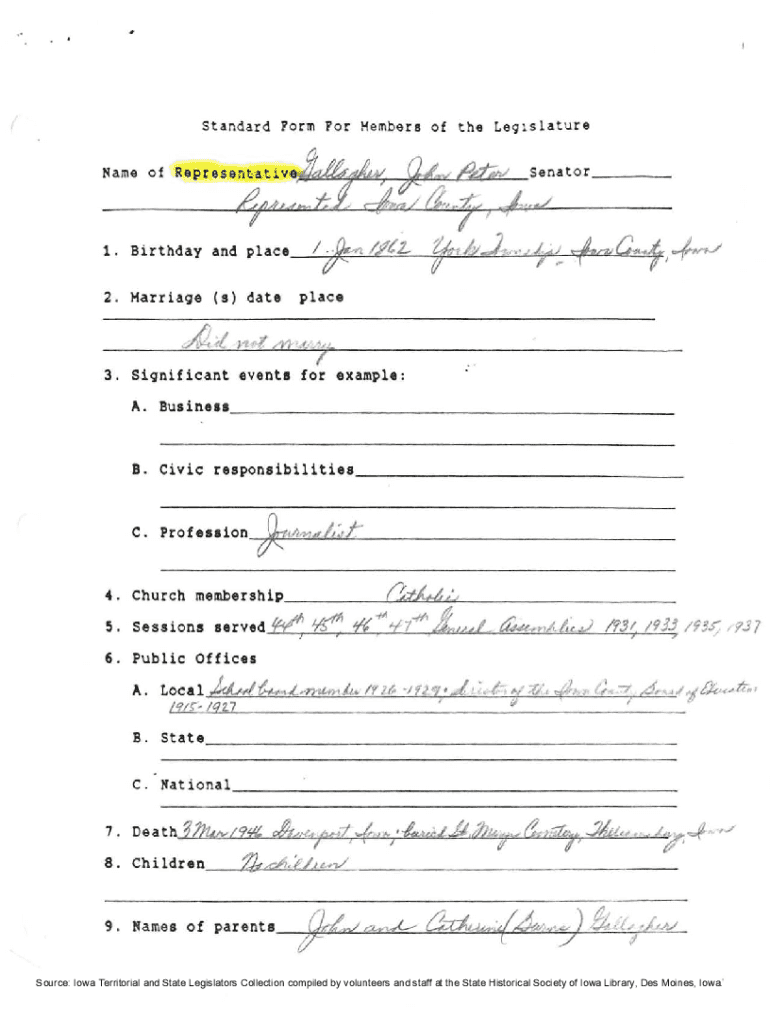 Standard Form For Members of the Legislature
Name of Representative Gallagher, John Peter Senator
Represented Iowa County, Iowa
1. Birthday and place 1 Jan 1862 York Township, Iowa County, Iowa
2. Marriage (s) date place
Did not marry
3. Significant events for example:
A. Business
B. Civic responsibilities
C. Profession Journalist
4. Church membership Catholic
5. Sessions served 44th, 45th, 46th, 47th General Assemblies 1931, 1933, 1935, 1937
6. Public Offices
A. Local School board member 1926-1929; director of the Iowa County Board of Education
1915-1927
B. State
C. National
7. Death 3 Mar 1946 Davenport, Iowa; buried St. Marys Cemetery, Williamsburg, Iowa
8. Children No children
9. Names of parents John and Catherine ( ) Gallagher
Source: Iowa Territorial and State Legislators Collection compiled by volunteers and staff at the State Historical Society of Iowa Library, Des Moines, Iowa